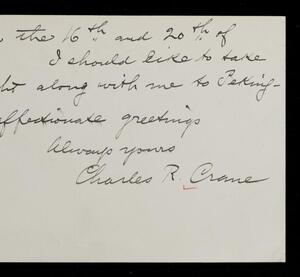 the 16th and 20th of
I should like to take
along with me to Peking-
affectionate greetings
Always yours
Charles R. Crane